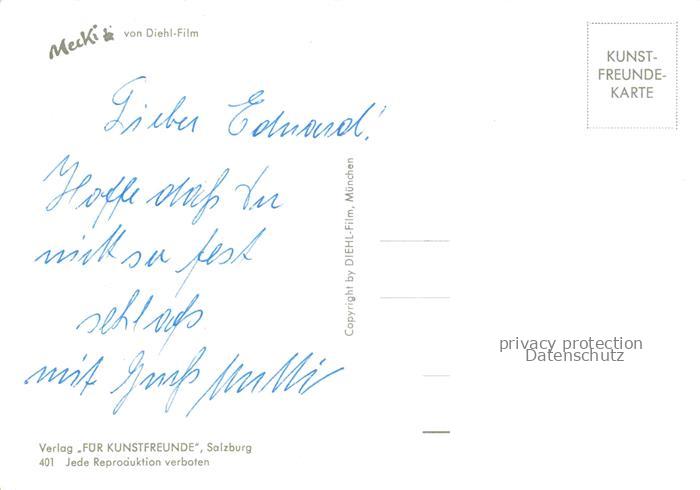 Mecki von Diehl-Film
KUNST-
FREUNDE-
KARTE
Lieber Eduard!
Hoffe daß Du
nicht so fest
schlafs
mit Gruß Mutti
Copyright by DIEHL-Film, München
privacy protection
Datenschutz
Verlag „FÜR KUNSTFREUNDE", Salzburg
401 Jede Reproduktion verboten